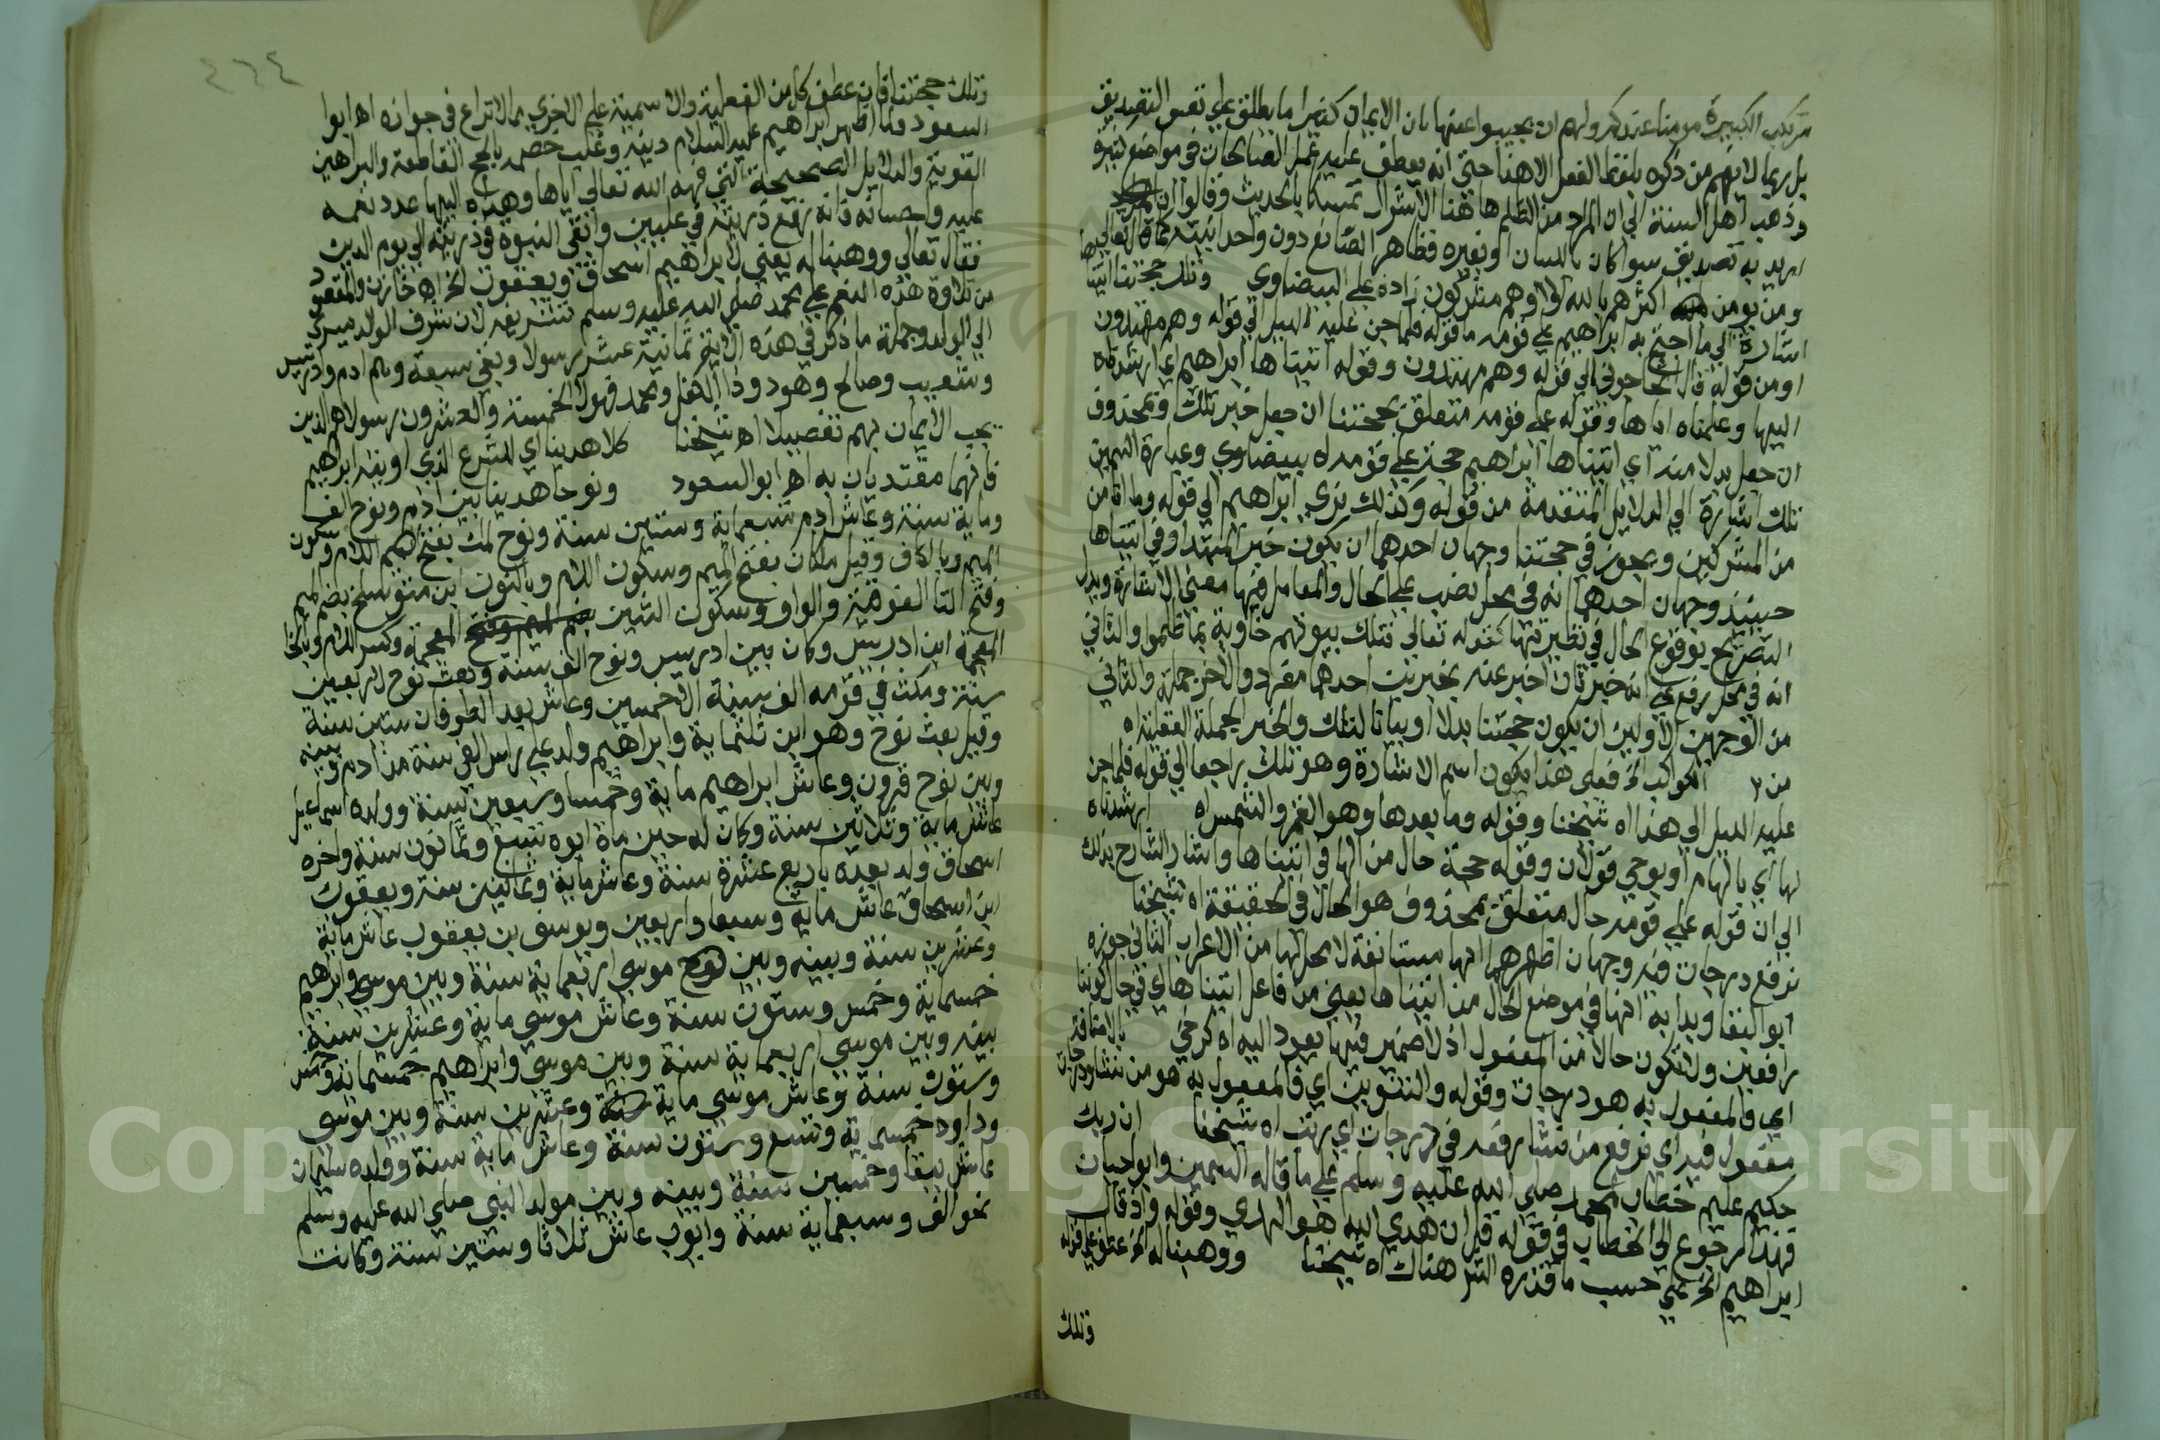 مرتكب الكبيرة مومنا عندكم ولهم ان يجيبوا عنها بان الايمان كثيرا ما يطلق على نفس التصديق
بل ربما لا يفهم من ذكره بلفظ الفعل الا هذا حتى انه يعطف عليه عمل الصالحات في مواضع كثيرة
وذهب اهل السنة الى ان المراد من الظلم هاهنا الاشراك تمسكا بالحديث وقالوا ان
اريد به تصديق سوا كان باللسان او بغيره فظاهر الصانع دون واحدانيته كما قال تعالى
وما يومن اكثرهم بالله الا وهم مشركون زاده على البيضاوي وتلك حجتنا اتيناها
اشارة الى ما احتج به ابراهيم على قومه من قوله فلما جن عليه الليل الى قوله وهم مهتدون
او من قوله قال اتحاجوني الى قوله وهم مهتدون وقوله اتيناها ابراهيم اي ارشدناه
اليها وعلمناه اياها وقوله على قومه متعلق بحجتنا ان جعل خبر تلك وبمحذوف
ان جعل بدلا منه اي اتيناها ابراهيم حجة على قومه اه بيضاوي وعبارة السمين
تلك اشارة الى الدلايل المتقدمة من قوله وكذلك نري ابراهيم الى قوله وما انا من
من المشركين ويجوز في حجتنا وجهان احدهما ان يكون خبر المبتدا وفي اتيناها
حينيذ وجهان احدهما انه في محل نصب على الحال والعامل فيها معنى الاشارة ويدل
التصريح بوقوع الحال في نظيرتها كقوله تعالى فتلك بيوتهم خاوية بما ظلموا والثاني
انه في محل رفع على انه خبر ثان اخبر عنه بخبرين احدهما مفرد والاخر جملة والثاني
من الوجهين الاولين ان يكون حجتنا بدلا او بيانا لتلك والخبر الجملة الفعلية اه
من الكواكب الخ فعلى هذا يكون اسم الاشارة وهو تلك راجعا الى قوله فلما جن
عليه الليل الى هذا اه شيخنا وقوله وما بعدها وهو القمر والشمس اه ارشدناه
لها اي بالهام او بوحي قولان وقوله حجة حال من الها في اتيناها واشار الشارح بذلك
الى ان قوله على قومه حال متعلق بمحذوف هو الحال في الحقيقة اه شيخنا
نرفع درجات فيه وجهان اظهرهما انها مستانفة لا محل لها من الاعراب الثاني جوزه
ابو البقا وبدا به انها في موضع الحال من اتيناها يعني من فاعل اتيناها اي في حال كوننا
رافعين ولا تكون حالا من المفعول اذ لا ضمير فيها يعود اليه اه كرخي بالاضافة
اي فالمفعول به هو درجات وقوله والتنوين اي فالمفعول به هو من نشا ودرجات
مفعول فيه اي نرفع من نشا رفعه في درجات اي رتب اه شيخنا ان ربك
حكيم عليم خطاب لمحمد صلى الله عليه وسلم على ما قاله السمين وابو حيان
فهذا الرجوع الى الخطاب في قوله قل ان هدى الله هو الهدى وقوله واذ قال
ابراهيم الخ على حسب ما قدره الشر هناك اه شيخنا ووهبنا له الخ عطف على قوله
وتلك
٤٦٤
وتلك حجتنا فان عطف كل من الفعلية والاسمية على الاخرى مما لا نزاع في جوازه اه ابو
السعود ولما اظهر ابراهيم عليه السلام دينه وغلب خصمه بالحجج القاطعة والبراهين
القوية والدلايل الصحيحة التي فهمه الله تعالى اياها وهداه اليها عدد نعمه
عليه واحسانه بانه رفع درجته في عليين وابقى النبوة في ذريته الى يوم الدين
فقال تعالى ووهبنا له يعني لابراهيم اسحاق ويعقوب الخ اه خازن والمقصود
من تلاوة هذه النعم على محمد صلى الله عليه وسلم تشريفه لان شرف الوالد يسري
الى الولد وجملة ما ذكر في هذه الاية ثمانية عشر رسولا وبقي سبعة وهم ادم وادريس
وشعيب وصالح وهود وذا الكفل ومحمد فهولا الخمسة والعشرون رسولا هم الذين
يجب الايمان بهم تفصيلا اه شيخنا كلا هدينا اي للشرع الذي اوتيه ابراهيم
فانهما مقتديان به اه ابو السعود ونوحا هدينا بين ادم ونوح الف
وماية سنة وعاش ادم تسعماية وستين سنة ونوح لمك بفتح الميم اللام وسكون
الميم وبالكاف وقيل ملكان بفتح الميم وسكون اللام وبالنون ابن متوشلخ بضم الميم
وفتح التا الفوقية والواو وسكون الشين المعجمة وكسر اللام وبالخا
المعجمة ابن ادريس وكان بين ادريس ونوح الف سنة وبعث نوح لاربعين
سنة ومكث في قومه الف سنة الا خمسين وعاش بعد الطوفان ستين سنة
وقيل بعث نوح وهو ابن ثلثماية وابراهيم ولد على راس الفي سنة من ادم وبينه
وبين نوح قرون وعاش ابراهيم ماية وخمسا وسبعين سنة وولده اسماعيل
عاش ماية وثلاثين سنة وكان له حين مات ابوه تسع وثمانون سنة واخوه
اسحاق ولد بعده باربع عشرة سنة وعاش ماية وثمانين سنة ويعقوب
ابن اسحاق عاش ماية وسبعا واربعين ويوسف بن يعقوب عاش ماية
وعشرين سنة وبينه وبين موسى اربعماية سنة وبين موسى وابراهيم
خمسماية وخمس وستون سنة وعاش موسى ماية وعشرين سنة
بينه وبين موسى اربعماية سنة وبين موسى وابراهيم خمسماية وخمس
وستون سنة وعاش موسى ماية وعشرين سنة وبين موسى
وداود خمسماية وتسع وستون سنة وعاش ماية سنة وولده سليمان
عاش نيفا وخمسين سنة وبينه وبين مولد النبي صلى الله عليه وسلم
نحو الف وسبعماية سنة وايوب عاش ثلاثا وستين سنة وكانت
Copyright © King Saud University